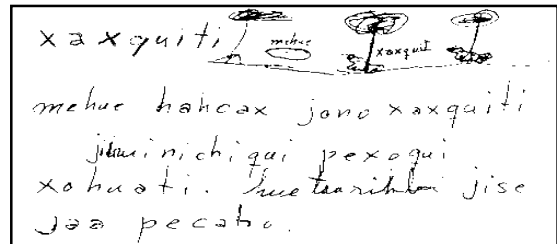 xaxquiti
mehue
xaxquit
mehue hahcax jono xaxquiti
inichiqui pexoqui
xohuati. jise
jaa pecaho.